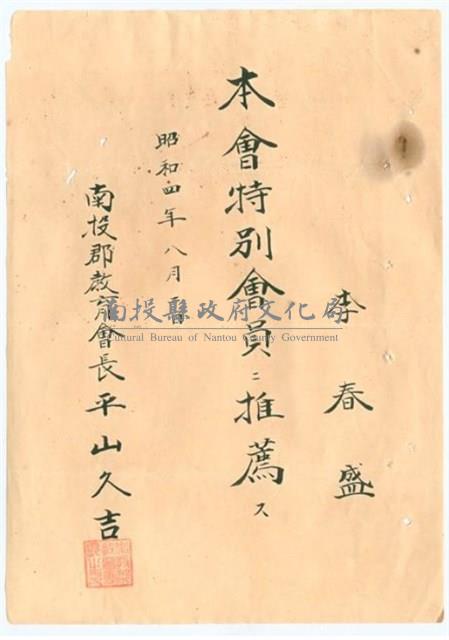 李春盛
本會特別會員ニ推薦ス
昭和四年八月
南投郡教育會長平山久吉
南投縣政府文化局
Cultural Bureau of Nantou County Government